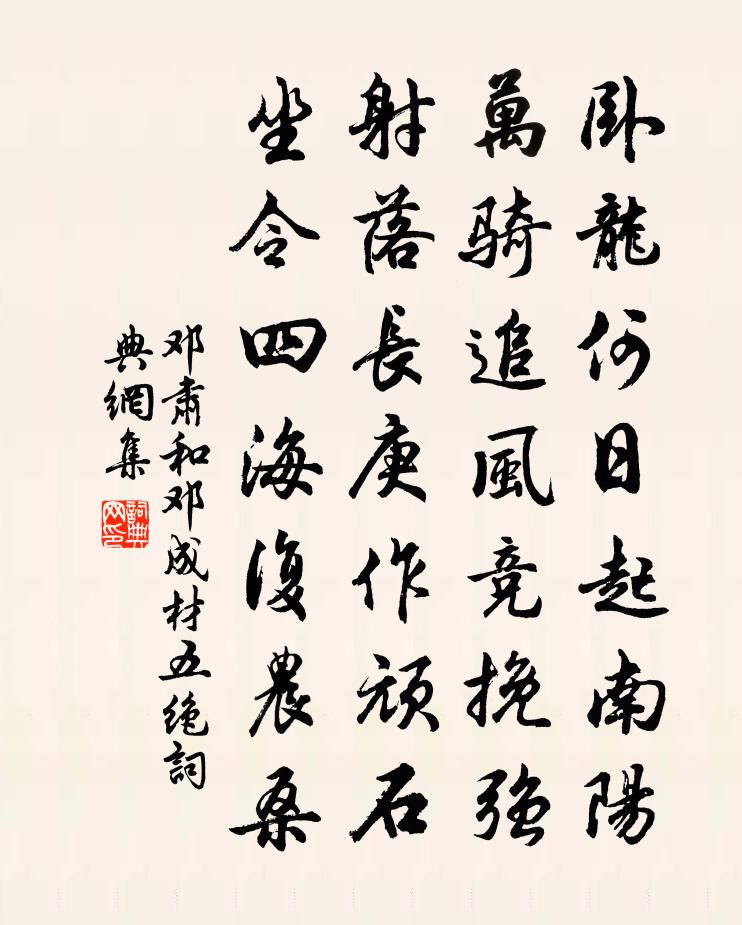 卧龍何日起南陽
萬騎追風竞挽强
射落長庚作頑石
坐令四海復農桑
邓肅和邓成材五絶詞
典網集
詞典网印